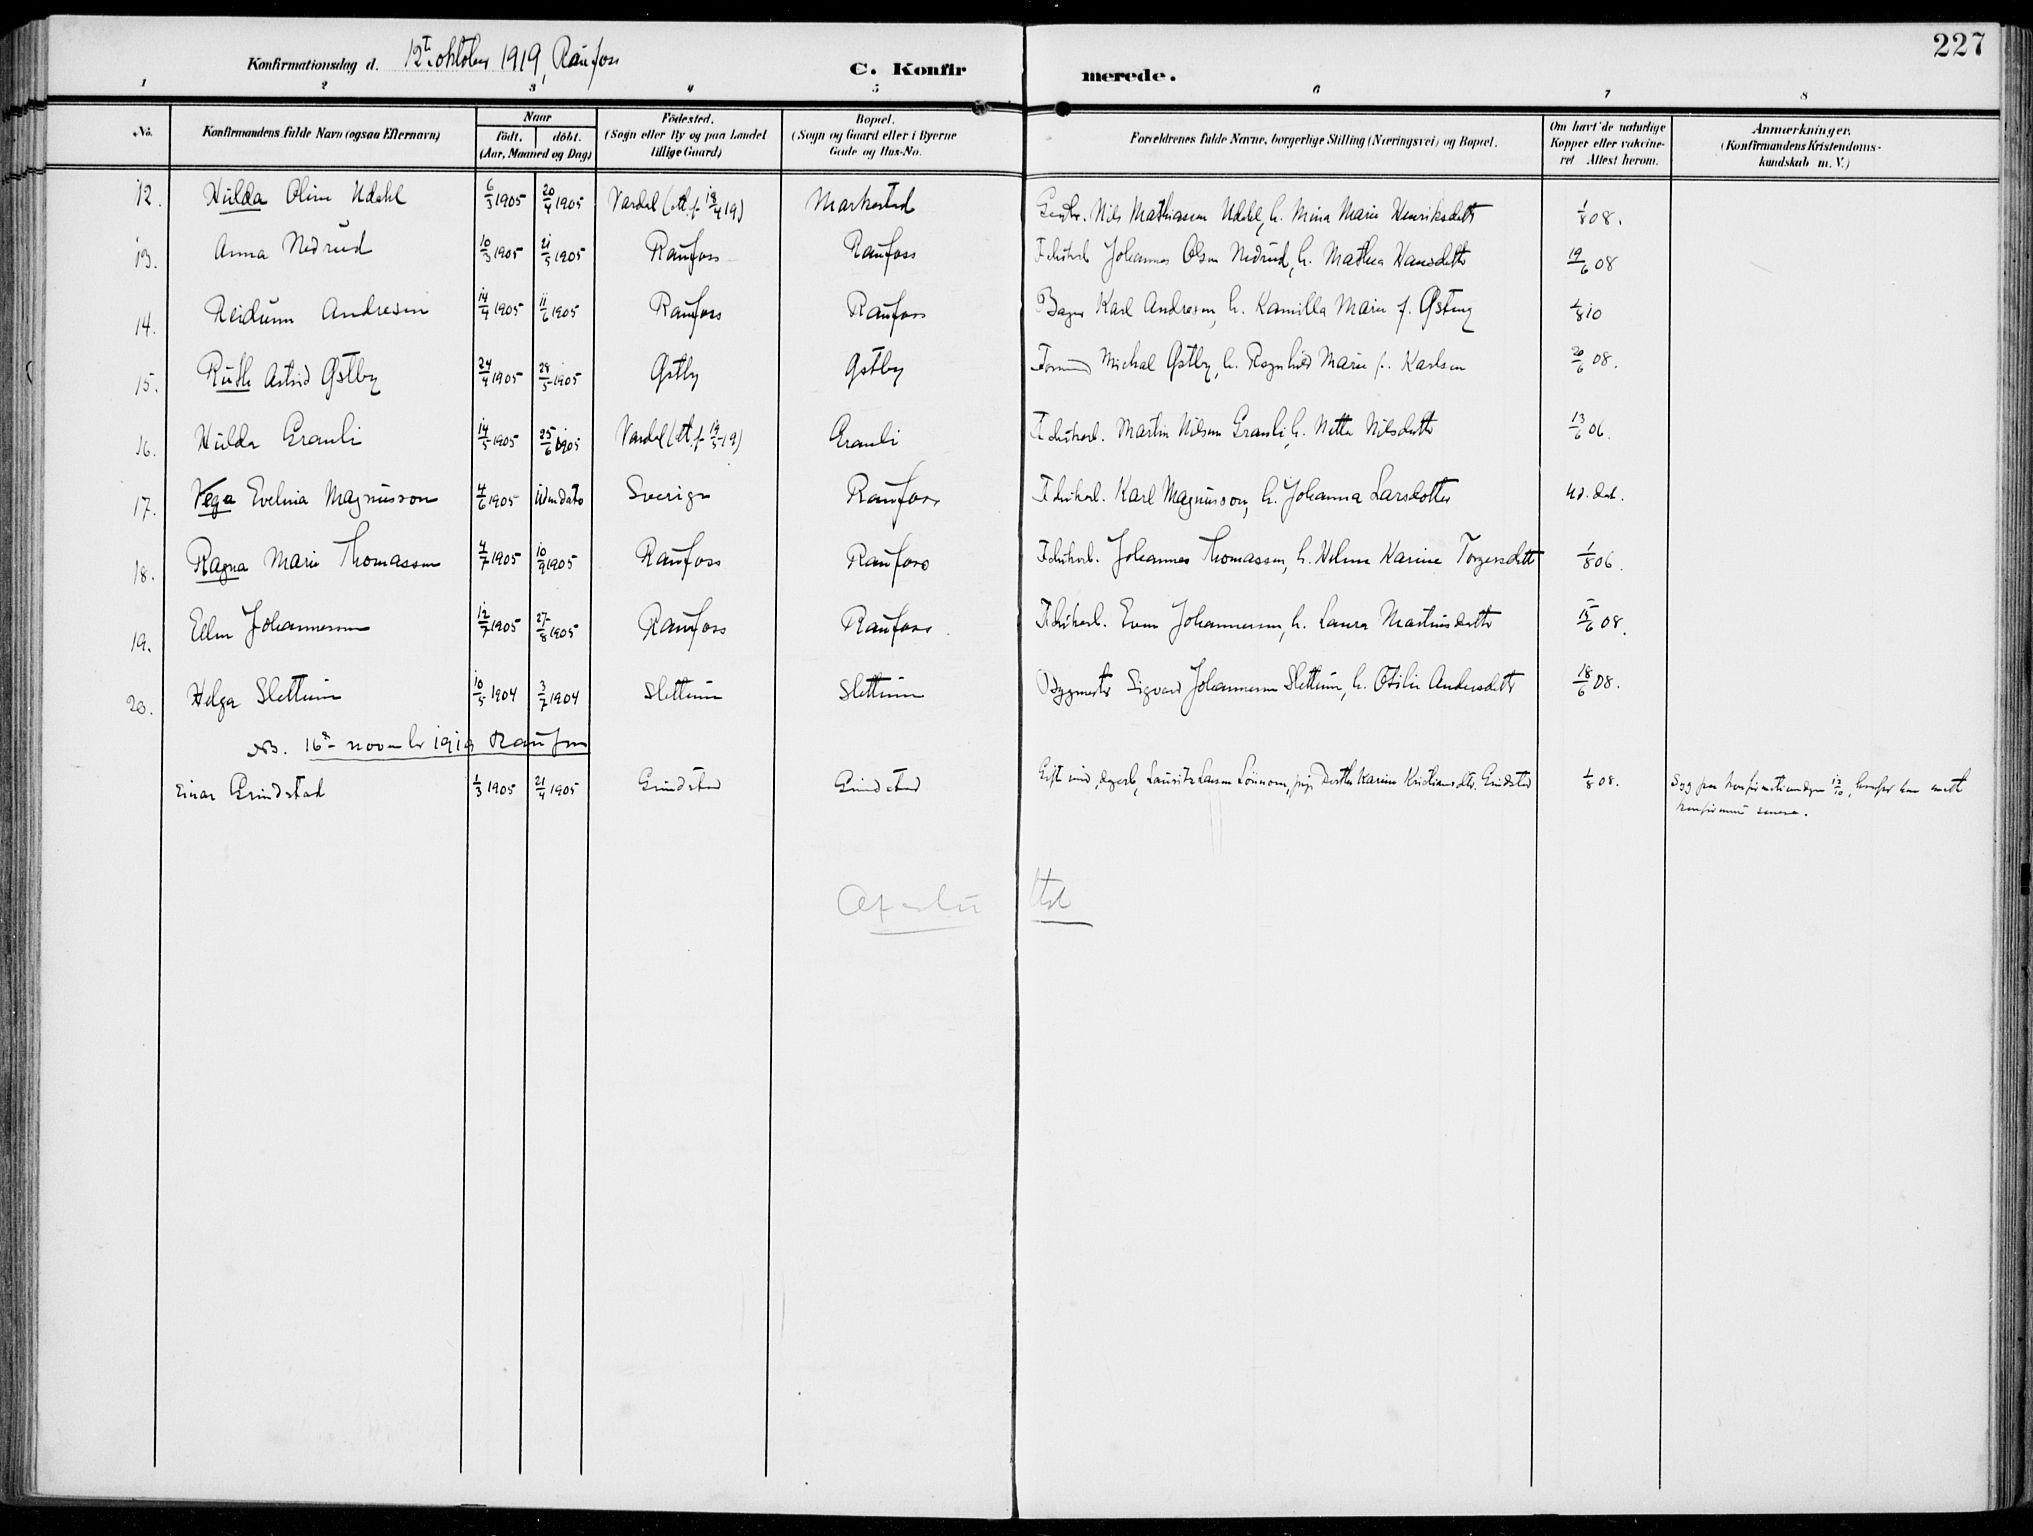 227
Konfirmationsdag d. 12te oktober 1919, Raufoss
C. Konfirmerede.
1 2 3 4 5 6 7 8
No. Konfirmandens fulde Navn (ogsaa Efternavn) Naar födt. döbt. (Aar, Maaned og Dag) Födested. (Sogn eller By og paa Landet tillige Gaard) Bopæl. (Sogn og Gaard eller i Byerne Gade og Hus-No. Forældrenes fulde Navne, borgerlige Stilling (Næringsvei) og Bopæl. Om havt de naturlige Kopper eller vakcineret Attest herom. Anmærkninger. (Konfirmandens Kristendomskundskab m. V.)
12. Hulda Oline Udahl 6/3 1905 20/4 1905 Vardal (att. f. 18/4 19) Markestad Nils Mathiassen Udahl, h. Mina Marie Henriksdatter 1/8 08.
13. Anna Nedrud 10/3 1905 21/5 1905 Raufoss Raufoss Johannes Olsen Nedrud, h. Mathea Hansdatter 19/6 08
14. Reidunn Andresen 14/4 1905 11/6 1905 Raufoss Raufoss Bager Karl Andresen, h. Kamilla Marie f. Østeng 1/8 10
15. Ruth Astrid Østby 24/4 1905 28/5 1905 Østby Østby Formand Michal Østby, h. Ragnhild Marie f. Karlsen 20/6 08.
16. Hulda Granli 14/5 1905 25/6 1905 Vardal (att. f. 19/5 19) Granli Martin Nilsen Granli, h. Netta Nilsdatter 13/6 06.
17. Vega Evelina Magnusson 4/6 1905 Uden dato Sverige Raufoss Karl Magnusson, h. Johanna Larsdotter ud. dat.
18. Ragna Marie Thomassen 4/7 1905 10/9 1905 Raufoss Raufoss Johannes Thomassen, h. Helene Karine Torgersdatter 1/8 06.
19. Ellen Johannessen 12/7 1905 27/8 1905 Raufoss Raufoss Even Johannessen, h. Laura Martinsdatter 15/6 08.
20. Helga Slettum 10/5 1904 3/7 1904 Slettum Slettum Bygmester Sigvard Johannessen Slettum, h. Otilie Andersdatter 18/6 08.
16de november 1919 Raufoss
Einar Grindstad 1/3 1905 21/4 1905 Grindstad Grindstad Gift mand, Lauritz Larsen, pige Dorthe Karine Kristiansdtr. Grindstad 1/8 08. Syg paa konfirmationsdagen 12/10, hvorfor han maatte
konfirmeres senere.
Afsluttet